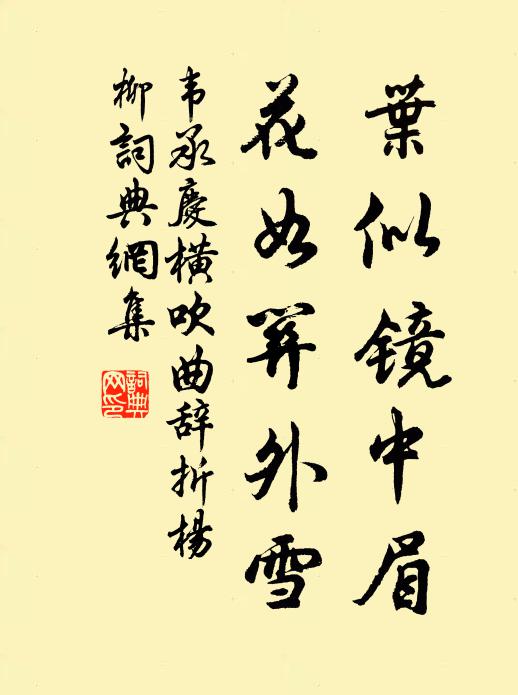 葉似镜中眉
花如関外雪
韦承慶橫吹曲辞折楊
柳詞典網集
詞典
网印